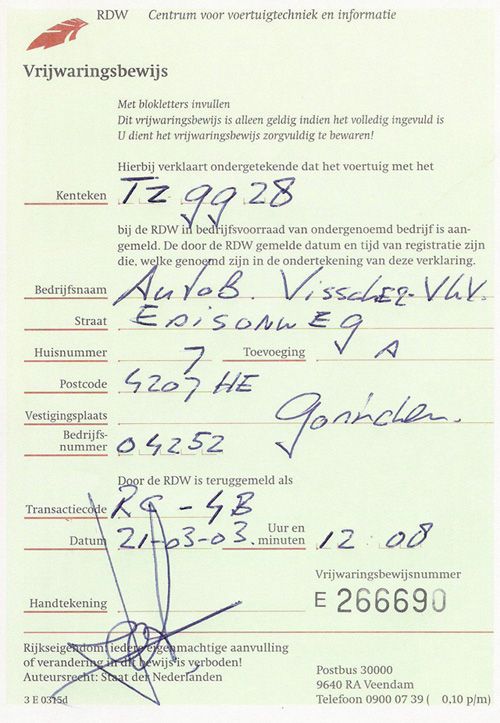 RDW Centrum voor voertuigtechniek en informatie
Vrijwaringsbewijs
Met blokletters invullen
Dit vrijwaringsbewijs is alleen geldig indien het volledig ingevuld is
U dient het vrijwaringsbewijs zorgvuldig te bewaren!
Hierbij verklaart ondergetekende dat het voertuig met het
Kenteken TZ gg 28
bij de RDW in bedrijfsvoorraad van ondergenoemd bedrijf is aan-
gemeld. De door de RDW gemelde datum en tijd van registratie zijn
die, welke genoemd zijn in de ondertekening van deze verklaring.
Bedrijfsnaam AutoB. Visscher
Straat EDISONWEg
Huisnummer 7 Toevoeging A
Postcode 4207 HE
Vestigingsplaats Gorinchem.
Bedrijfs-
nummer 04252
Door de RDW is teruggemeld als
Transactiecode - 4B
Datum 21-03-03. Uur en
minuten 12:08
Vrijwaringsbewijsnummer
Handtekening E 266690
Rijkseigendom: iedere eigenmachtige aanvulling
of verandering in dit bewijs is verboden!
Auteursrecht: Staat der Nederlanden
3 E 0315d
Postbus 30000
9640 RA Veendam
Telefoon 0900 07 39 ( 0,10 p/m)